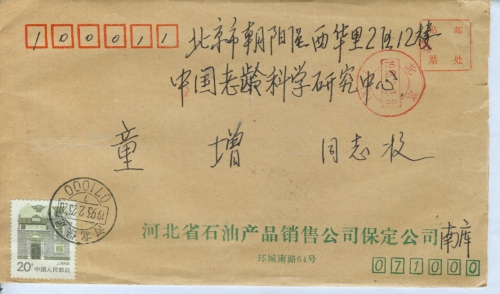 100011
北京市朝阳区西华里2区12楼
贴 邮
票 处
中国老龄科学研究中心
童 增 同志收
071000
河北
20分 中国人民邮政
河北省石油产品销售公司保定公司南库
环城南路64号
071000